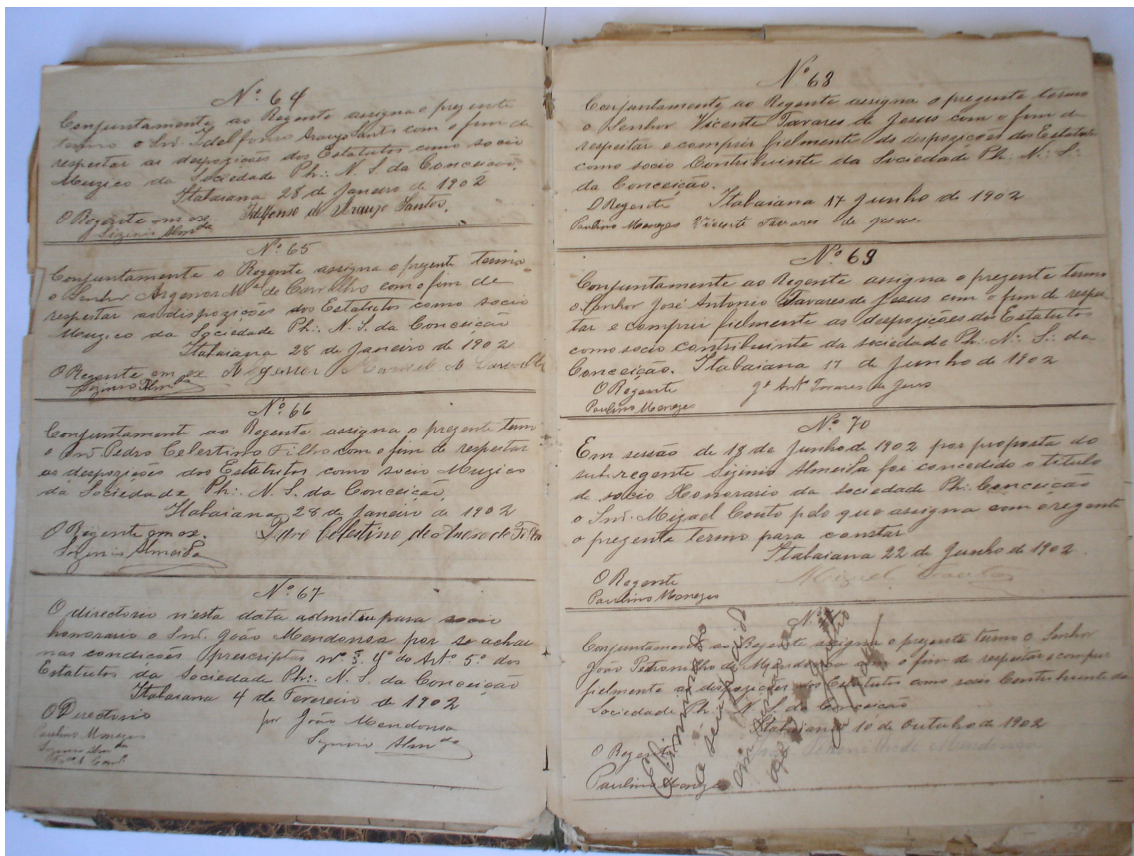 Nº 64
Conjuntamente ao Regente assigna o prezente
termo o Snr. Idelfonso Araujo Santos com o fim de
respeitar as despozições dos Estatutos como socio
Muzico da Sociedade Ph: N. S. da Conceição.
Itabaiana 28 de Janeiro de 1902
O Regente em ex. Idelfonso de Araujo Santos.
Sizinio Almda
Nº 65
Conjuntamente o Regente assigna o prezente termo
o Senhor Argenor Mel de Carvalho com o fim de
respeitar as dispozições dos Estatutos como socio
Muzico da Sociedade Ph: N. S. da Conceição
Itabaiana 28 de Janeiro de 1902
O Regente em ex.
Sizinio Almda
Nº 66
Conjuntamente ao Regente assigna o prezente termo
o Snr. Pedro Celestino Filho com o fim de respeitar
as despozições dos Estatutos como socio Muzico
da Sociedade Ph: N. S. da Conceição,
Itabaiana 28 de Janeiro de 1902
O Regente em ex. Pedro Celestino de
Sizinio Almeida
Nº 67
O directorio n'esta data admitiu para socio
honorario o Snr. João Mendonsa por se achar
nas condições prescriptas nº 3. 4º do Artº 5º dos
Estatutos da Sociedade Ph: N. S. da Conceição
Itabaiana 4 de Fevereiro de 1902
O Directorio por João Mendonsa
Paulino Menezes Sizinio Almda
Sizinio Almda
Nº 68
Conjuntamente ao Regente assigna o prezente termo
o Senhor Vicente Tavares de Jesus com o fim de
respeitar e comprir fielmente as despozições dos Estatutos
como socio Contribuinte da Sociedade Ph: N: S:
da Conceição.
O Regente Itabaiana 17 Junho de 1902
Paulino Menezes Vicente Tavares de Jesus
Nº 69
Conjuntamente ao Regente assigna o prezente termo
o Senhor José Antonio Tavares de Jesus com o fim de respei-
tar e comprir fielmente as despozições do Estatutos
como socio contribuinte da sociedade Ph: N: S: da
Conceição. Itabaiana 17 de Junho de 1902
O Regente Jé Antº Tavares de Jesus
Paulino Menezes
Nº 70
Em sessão de 18 de Junho de 1902 por proposta do
sub-regente Sizinio Almeida foi concedido o titulo
de socio Honorario da sociedade Ph: Conceição
o Snr. Mizael Couto pelo que assigna com o regente
o prezente termo para constar
Itabaiana 22 de Junho de 1902.
O Regente Mizael Couto
Paulino Menezes
Nº
Conjuntamente ao Regente assigna o prezente termo o Senhor
João Petronilho de Mendonça com o fim de respeitar e comprir
fielmente as dispozições dos Estatutos como socio Contribuinte da
Sociedade Ph: N. S. da Conceição
Itabaiana 10 de Outubro de 1902
O Regente João Petronilho de Mendonça
Paulino Menezes
Eliminado
a seu pedido
em
de Junho